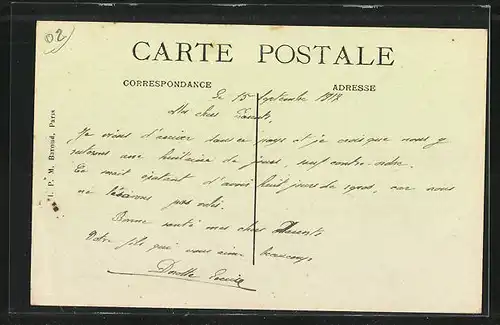 02
CARTE POSTALE
CORRESPONDANCE
ADRESSE
I. P. M. Paris
Le 15 Septembre 1918
Mes chers Parents,
Je viens d'arriver dans ce pays et je crois que nous y
resterons une huitaine de jours, sauf contre-ordre.
Ce serait d'avoir huit jours de repos, car nous
ne pas volés.
Bonne santé mes chers Parents
Votre fils qui vous aime beaucoup